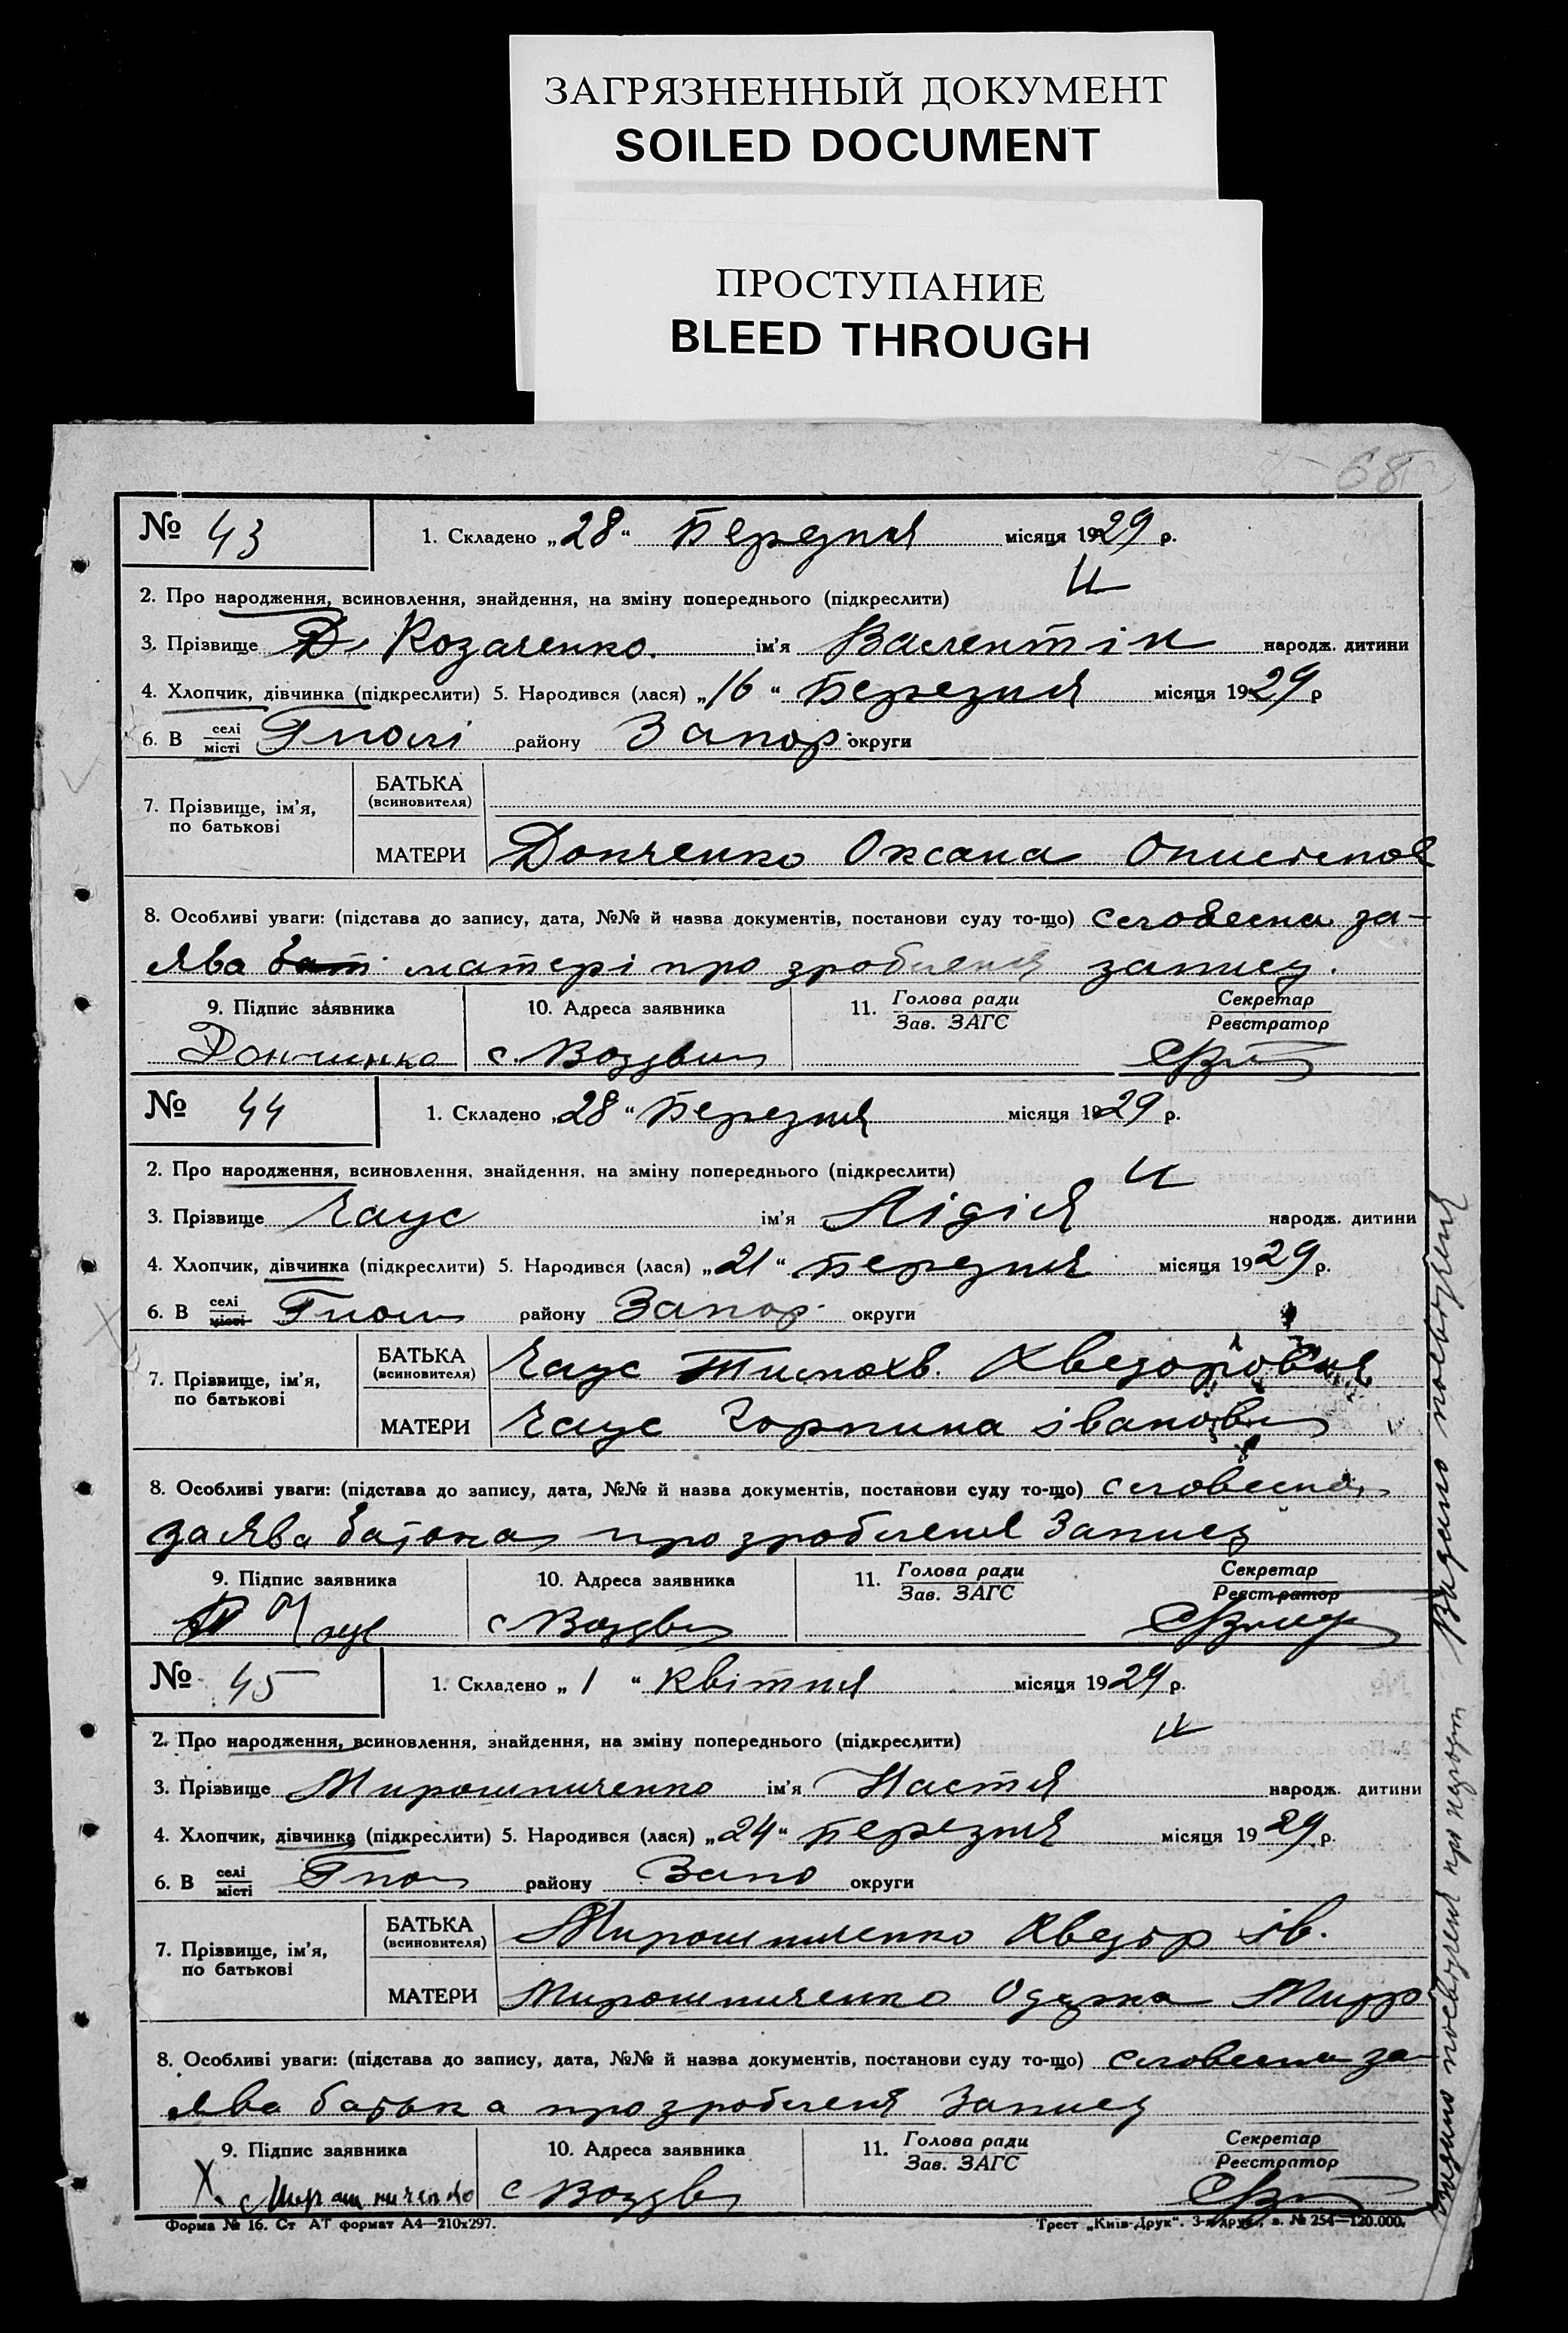 ЗАГРЯЗНЕННЫЙ ДОКУМЕНТ
SOILED DOCUMENT
ПРОСТУПАНИЕ
BLEED THROUGH
68
№ 43 1. Складено „28“ Березня місяця 1929 р.
2. Про народження, всиновлення, знайдення, на зміну попереднього (підкреслити)
3. Прізвище Козаченко. ім'я Валентін народж. дитини
4. Хлопчик, дівчинка (підкреслити) 5. Народився (лася) „16“ Березня місяця 1929 р
6. В селі місті району Запор. округи
7. Прізвище, ім'я, по батькові
БАТЬКА (всиновителя)
МАТЕРИ Донченко Оксана
8. Особливі уваги: (підстава до запису, дата, №№ й назва документів, постанови суду то-що) словесна за-
ява матері про зроблення запису.
9. Підпис заявника 10. Адреса заявника 11. Голова ради Зав. ЗАГС Секретар Реєстратор
Дончинко с. Воздвин
№ 44 1. Складено „28“ Березня місяця 1929 р.
2. Про народження, всиновлення, знайдення, на зміну попереднього (підкреслити)
3. Прізвище Чаус ім'я Лідія народж. дитини
4. Хлопчик, дівчинка (підкреслити) 5. Народився (лася) „21“ Березня місяця 1929 р.
6. В селі місті району Запор. округи
7. Прізвище, ім'я, по батькові
БАТЬКА (всиновителя) Чаус Тимохв. Хведоров
МАТЕРИ Чаус Горпина іванов
8. Особливі уваги: (підстава до запису, дата, №№ й назва документів, постанови суду то-що) словесна
заява батька про зроблення запису
9. Підпис заявника 10. Адреса заявника 11. Голова ради Зав. ЗАГС Секретар Реєстратор
Чаус с Воздв
№ 45 1. Складено „1“ Квітня місяця 1929 р.
2. Про народження, всиновлення, знайдення, на зміну попереднього (підкреслити)
3. Прізвище Мирошниченко ім'я Настя народж. дитини
4. Хлопчик, дівчинка (підкреслити) 5. Народився (лася) „24“ Березня місяця 1929 р.
6. В селі місті району Запо округи
7. Прізвище, ім'я, по батькові
БАТЬКА (всиновителя) Мирошниченко Хведор ів.
МАТЕРИ Мирошниченко Одарка
8. Особливі уваги: (підстава до запису, дата, №№ й назва документів, постанови суду то-що) словесна за-
ява батька про зроблення запису
9. Підпис заявника 10. Адреса заявника 11. Голова ради Зав. ЗАГС Секретар Реєстратор
Х. Мирошниченко с Воздв
Форма № 16. Ст АТ формат А4—210х297. Трест „Київ-Друк“. 3-я друк., з. № 254—120.000.